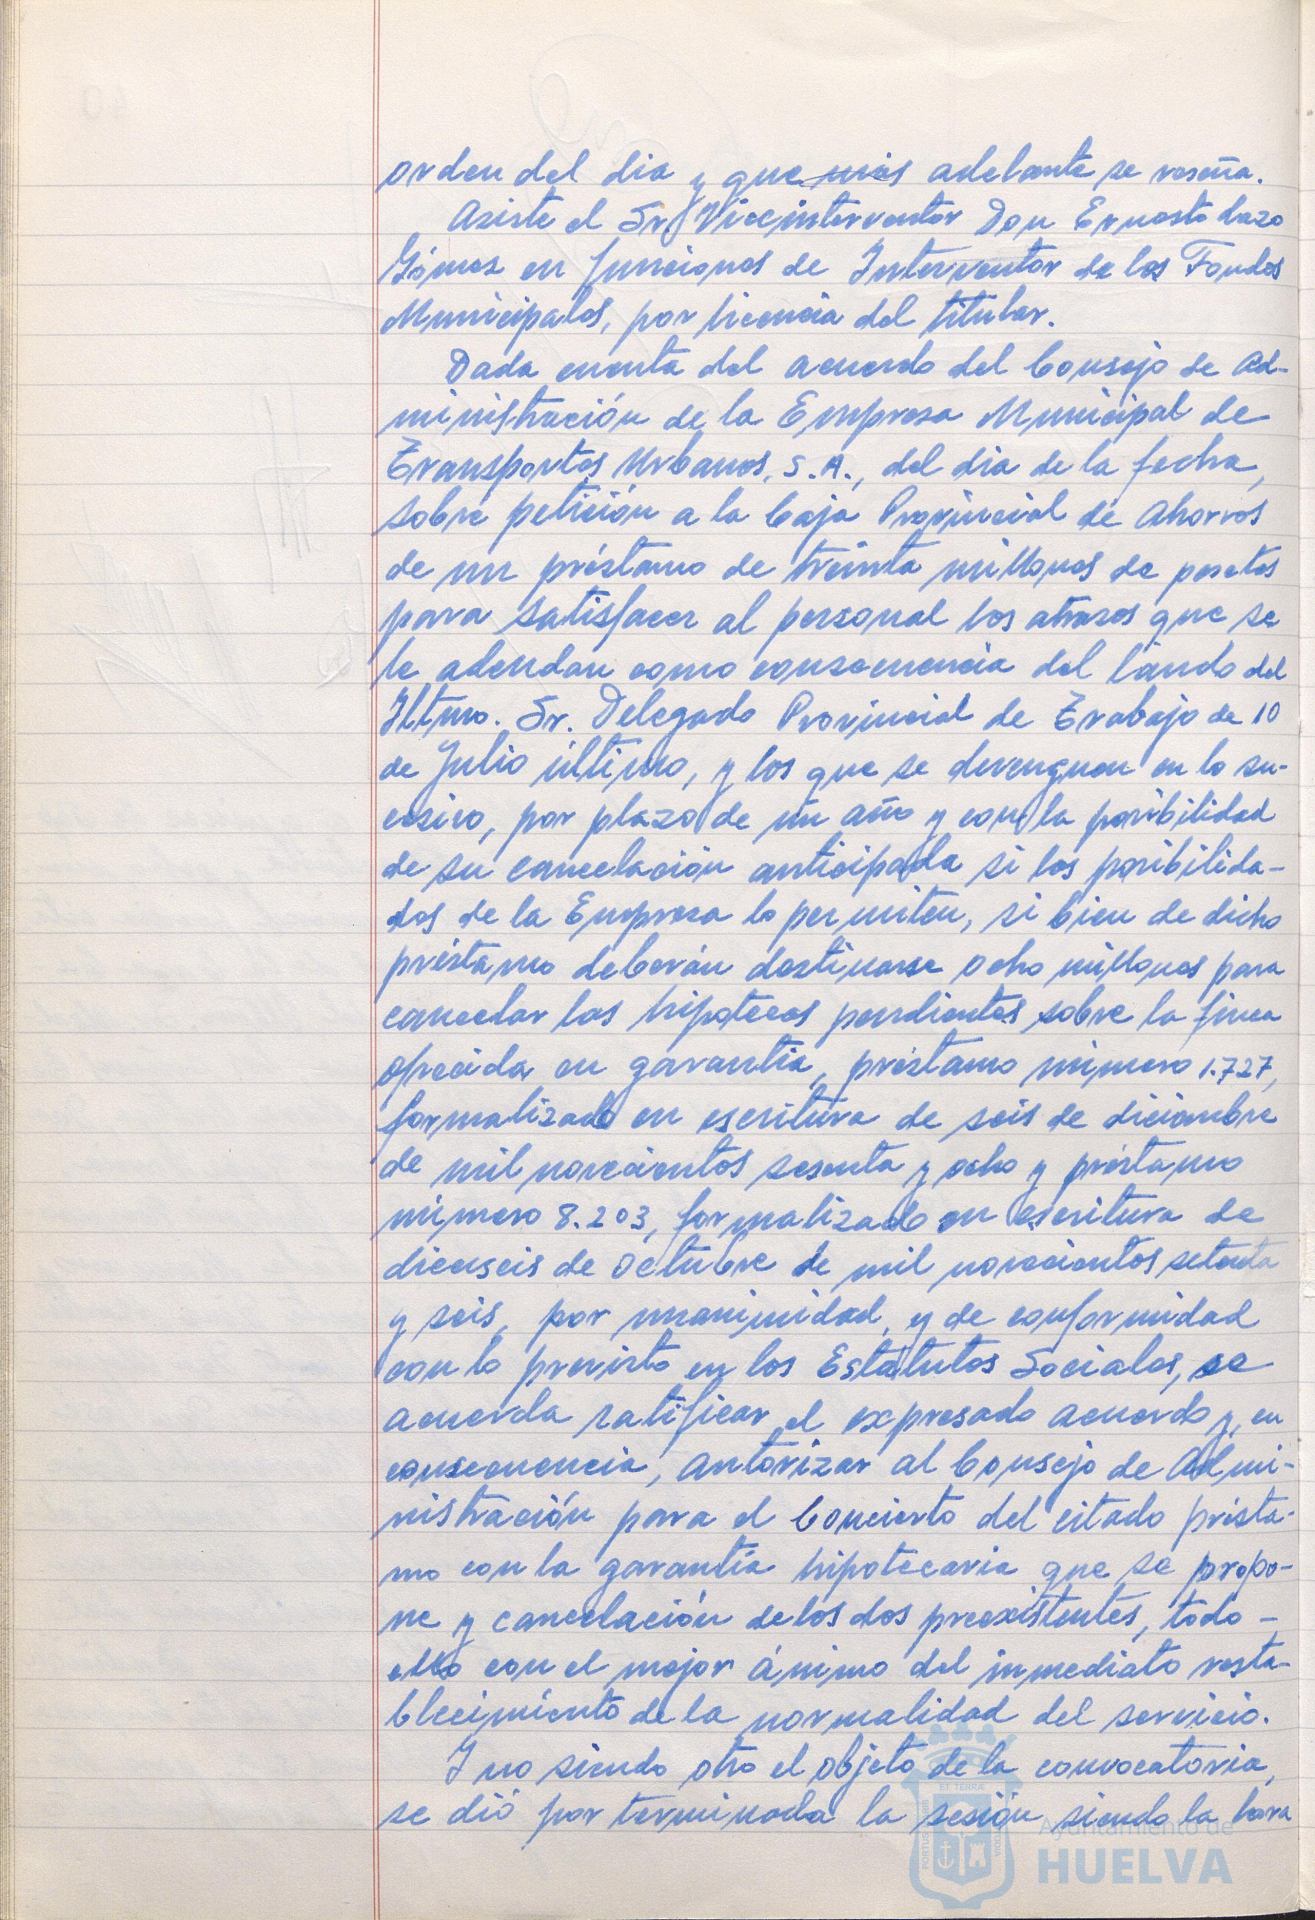 orden del dia y que más adelante se reseña.
Asiste el Sr. Viceinterventor Don Ernesto Lazo
Gómez en funciones de Interventor de los Fondos
Municipales, por licencia del titular.
Dada cuenta del acuerdo del Consejo de Ad-
ministración de la Empresa Municipal de
Transportes Urbanos, S.A., del dia de la fecha,
sobre petición a la Caja Provincial de Ahorros
de un préstamo de treinta millones de pesetas
para satisfacer al personal los atrasos que se
le adeudan como consecuencia del Laudo del
Iltmo. Sr. Delegado Provincial de Trabajo de 10
de Julio último, y los que se devenguen en lo su-
cesivo, por plazo de un año y con la posibilidad
de su cancelación anticipada si las posibilida-
des de la Empresa lo permiten, si bien de dicho
préstamo deberán destinarse ocho millones para
cancelar las hipotecas pendientes sobre la finca
ofrecida en garantía, préstamo número 1.727,
formalizado en escritura de seis de diciembre
de mil novecientos sesenta y ocho y préstamo
número 8.203, formalizado en escritura de
dieciseis de octubre de mil novecientos setenta
y seis, por unanimidad, y de conformidad
con lo previsto en los Estatutos Sociales, se
acuerda ratificar el expresado acuerdo y, en
consecuencia, autorizar al Consejo de Admi-
nistración para el Concierto del citado présta-
mo con la garantía hipotecaria que se propo-
ne y cancelación de los dos preexistentes, todo -
ello con el mejor ánimo del inmediato resta-
blecimiento de la normalidad del servicio.
Y no siendo otro el objeto de la convocatoria,
se dió por terminada la sesión, siendo la hora
Ayuntamiento de
HUELVA